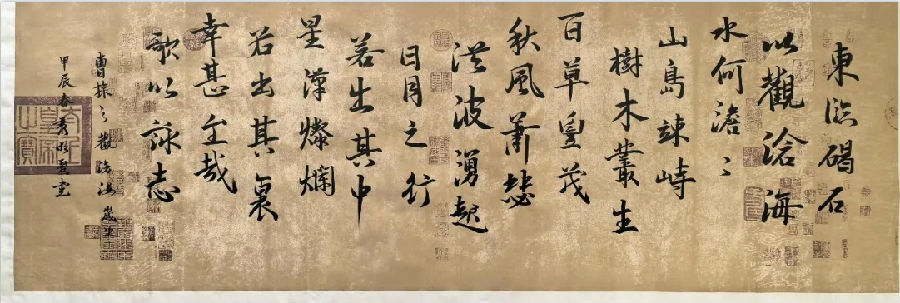 東臨碣石
以觀滄海
水何澹〻
山島竦峙
樹木叢生
百草豐茂
秋風蕭瑟
洪波湧起
日月之行
若出其中
星漢燦爛
若出其裏
幸甚至哉
歌以詠志
曹操之觀滄海歲次
甲辰春